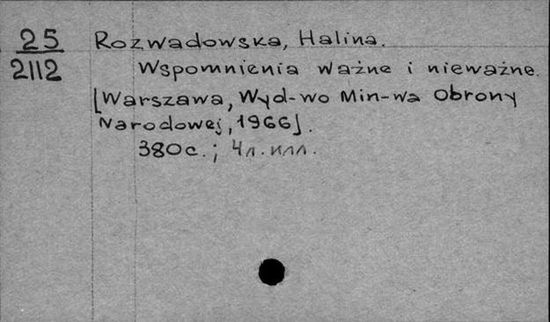 25 Rozwadowska, Halina.
2112 Wspomnienia ważne i nieważne.
[Warszawa, Wyd-wo Min-wa Obrony
Narodowej, 1966].
380с.; 4л. илл.